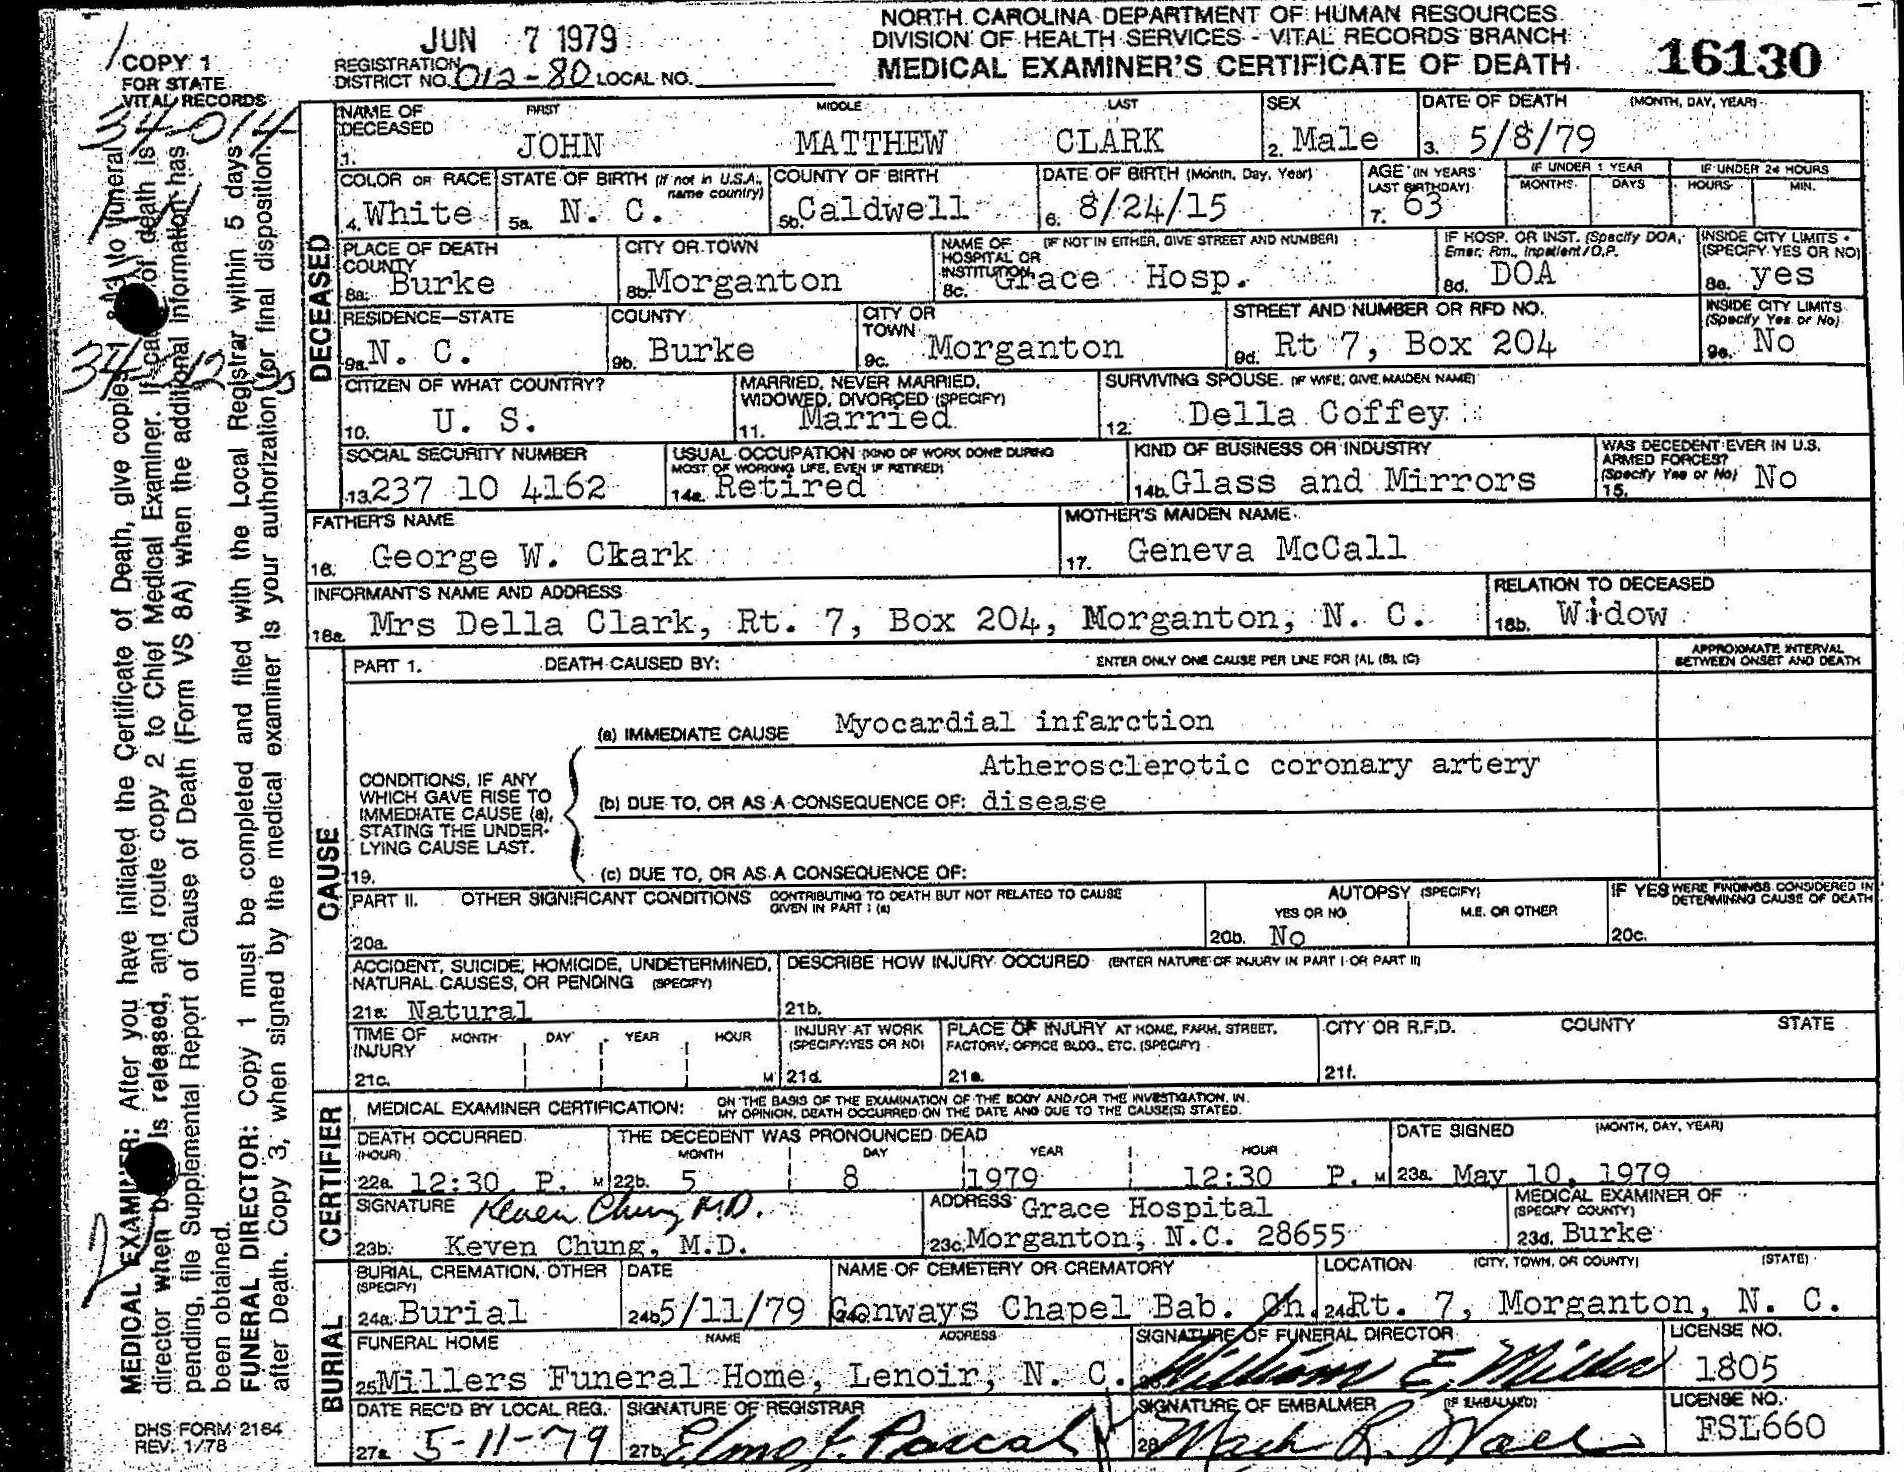 JUN 7 1979
NORTH CAROLINA DEPARTMENT OF HUMAN RESOURCES
DIVISION OF HEALTH SERVICES - VITAL RECORDS BRANCH
MEDICAL EXAMINER'S CERTIFICATE OF DEATH
16130
COPY 1
FOR STATE
VITAL RECORDS
REGISTRATION
DISTRICT NO. 012-80 LOCAL NO.
34-014
NAME OF DECEASED FIRST MIDDLE LAST
1. JOHN MATTHEW CLARK
SEX
2. Male
DATE OF DEATH (MONTH, DAY, YEAR)
3. 5/8/79
COLOR OR RACE
4. White
STATE OF BIRTH (If not in U.S.A., name country)
5a. N. C.
COUNTY OF BIRTH
5b. Caldwell
DATE OF BIRTH (Month, Day, Year)
6. 8/24/15
AGE (IN YEARS LAST BIRTHDAY)
7. 63
IF UNDER 1 YEAR
MONTHS DAYS
IF UNDER 24 HOURS
HOURS MIN.
DECEASED
PLACE OF DEATH
COUNTY
8a. Burke
CITY OR TOWN
8b. Morganton
NAME OF HOSPITAL OR INSTITUTION (IF NOT IN EITHER, GIVE STREET AND NUMBER)
8c. Grace Hosp.
IF HOSP. OR INST. (Specify DOA, Emer. Rm., Inpatient/O.P.
8d. DOA
INSIDE CITY LIMITS
(SPECIFY YES OR NO)
8e. yes
RESIDENCE—STATE
9a. N. C.
COUNTY
9b. Burke
CITY OR TOWN
9c. Morganton
STREET AND NUMBER OR RFD NO.
9d. Rt 7, Box 204
INSIDE CITY LIMITS
(Specify Yes or No)
9e. No
CITIZEN OF WHAT COUNTRY?
10. U. S.
MARRIED, NEVER MARRIED, WIDOWED, DIVORCED (SPECIFY)
11. Married
SURVIVING SPOUSE. (IF WIFE, GIVE MAIDEN NAME)
12. Della Coffey
SOCIAL SECURITY NUMBER
13. 237 10 4162
USUAL OCCUPATION (KIND OF WORK DONE DURING MOST OF WORKING LIFE, EVEN IF RETIRED)
14a. Retired
KIND OF BUSINESS OR INDUSTRY
14b. Glass and Mirrors
WAS DECEDENT EVER IN U.S. ARMED FORCES?
(Specify Yes or No)
15. No
FATHER'S NAME
16. George W. Ckark
MOTHER'S MAIDEN NAME
17. Geneva McCall
INFORMANT'S NAME AND ADDRESS
18a. Mrs Della Clark, Rt. 7, Box 204, Morganton, N. C.
RELATION TO DECEASED
18b. Widow
CAUSE
PART 1. DEATH CAUSED BY: ENTER ONLY ONE CAUSE PER LINE FOR (A), (B), (C)
APPROXIMATE INTERVAL
BETWEEN ONSET AND DEATH
(a) IMMEDIATE CAUSE Myocardial infarction
CONDITIONS, IF ANY
WHICH GAVE RISE TO
IMMEDIATE CAUSE (a),
STATING THE UNDER-
LYING CAUSE LAST.
Atherosclerotic coronary artery
(b) DUE TO, OR AS A CONSEQUENCE OF: disease
19. (c) DUE TO, OR AS A CONSEQUENCE OF:
PART II. OTHER SIGNIFICANT CONDITIONS CONTRIBUTING TO DEATH BUT NOT RELATED TO CAUSE GIVEN IN PART 1 (a)
20a.
AUTOPSY (SPECIFY)
YES OR NO M.E. OR OTHER
20b. No
IF YES WERE FINDINGS CONSIDERED IN DETERMINING CAUSE OF DEATH
20c.
ACCIDENT, SUICIDE, HOMICIDE, UNDETERMINED,
NATURAL CAUSES, OR PENDING (SPECIFY)
21a. Natural
DESCRIBE HOW INJURY OCCURED (ENTER NATURE OF INJURY IN PART I OR PART II)
21b.
TIME OF INJURY MONTH DAY YEAR HOUR
21c. M
INJURY AT WORK
(SPECIFY YES OR NO)
21d.
PLACE OF INJURY AT HOME, FARM, STREET,
FACTORY, OFFICE BLDG., ETC. (SPECIFY)
21e.
CITY OR R.F.D. COUNTY STATE
21f.
CERTIFIER
MEDICAL EXAMINER CERTIFICATION: ON THE BASIS OF THE EXAMINATION OF THE BODY AND/OR THE INVESTIGATION, IN
MY OPINION, DEATH OCCURRED ON THE DATE AND DUE TO THE CAUSE(S) STATED.
DEATH OCCURRED
(HOUR)
22a. 12:30 P. M
THE DECEDENT WAS PRONOUNCED DEAD
MONTH DAY YEAR HOUR
22b. 5 8 1979 12:30 P. M
DATE SIGNED (MONTH, DAY, YEAR)
23a. May 10, 1979
SIGNATURE Keven Chung M.D.
23b. Keven Chung, M.D.
ADDRESS Grace Hospital
23c. Morganton, N.C. 28655
MEDICAL EXAMINER OF
(SPECIFY COUNTY)
23d. Burke
BURIAL
BURIAL, CREMATION, OTHER
(SPECIFY)
24a. Burial
DATE
24b. 5/11/79
NAME OF CEMETERY OR CREMATORY
24c. Conways Chapel Bab. Ch.
LOCATION (CITY, TOWN, OR COUNTY) (STATE)
24d. Rt. 7, Morganton, N. C.
FUNERAL HOME NAME ADDRESS
25 Millers Funeral Home, Lenoir, N. C.
SIGNATURE OF FUNERAL DIRECTOR
William E. Miller
LICENSE NO.
1805
DATE REC'D BY LOCAL REG.
27a. 5-11-79
SIGNATURE OF REGISTRAR
27b.
SIGNATURE OF EMBALMER (IF EMBALMED)
28
LICENSE NO.
FSL660
MEDICAL EXAMINER: After you have initiated the Certificate of Death, give copies
director when is released, and route copy 2 to Chief Medical Examiner. of death is
pending, file Supplemental Report of Cause of Death (Form VS 8A) when the additional information has
been obtained.
FUNERAL DIRECTOR: Copy 1 must be completed and filed with the Local Registrar within 5 days
after Death. Copy 3, when signed by the medical examiner is your authorization for final disposition.
DHS FORM 2164
REV. 1/78